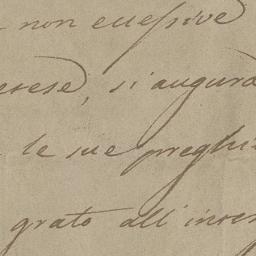 non eccessive
erese, si augura
le sue preghi
grato all'inter